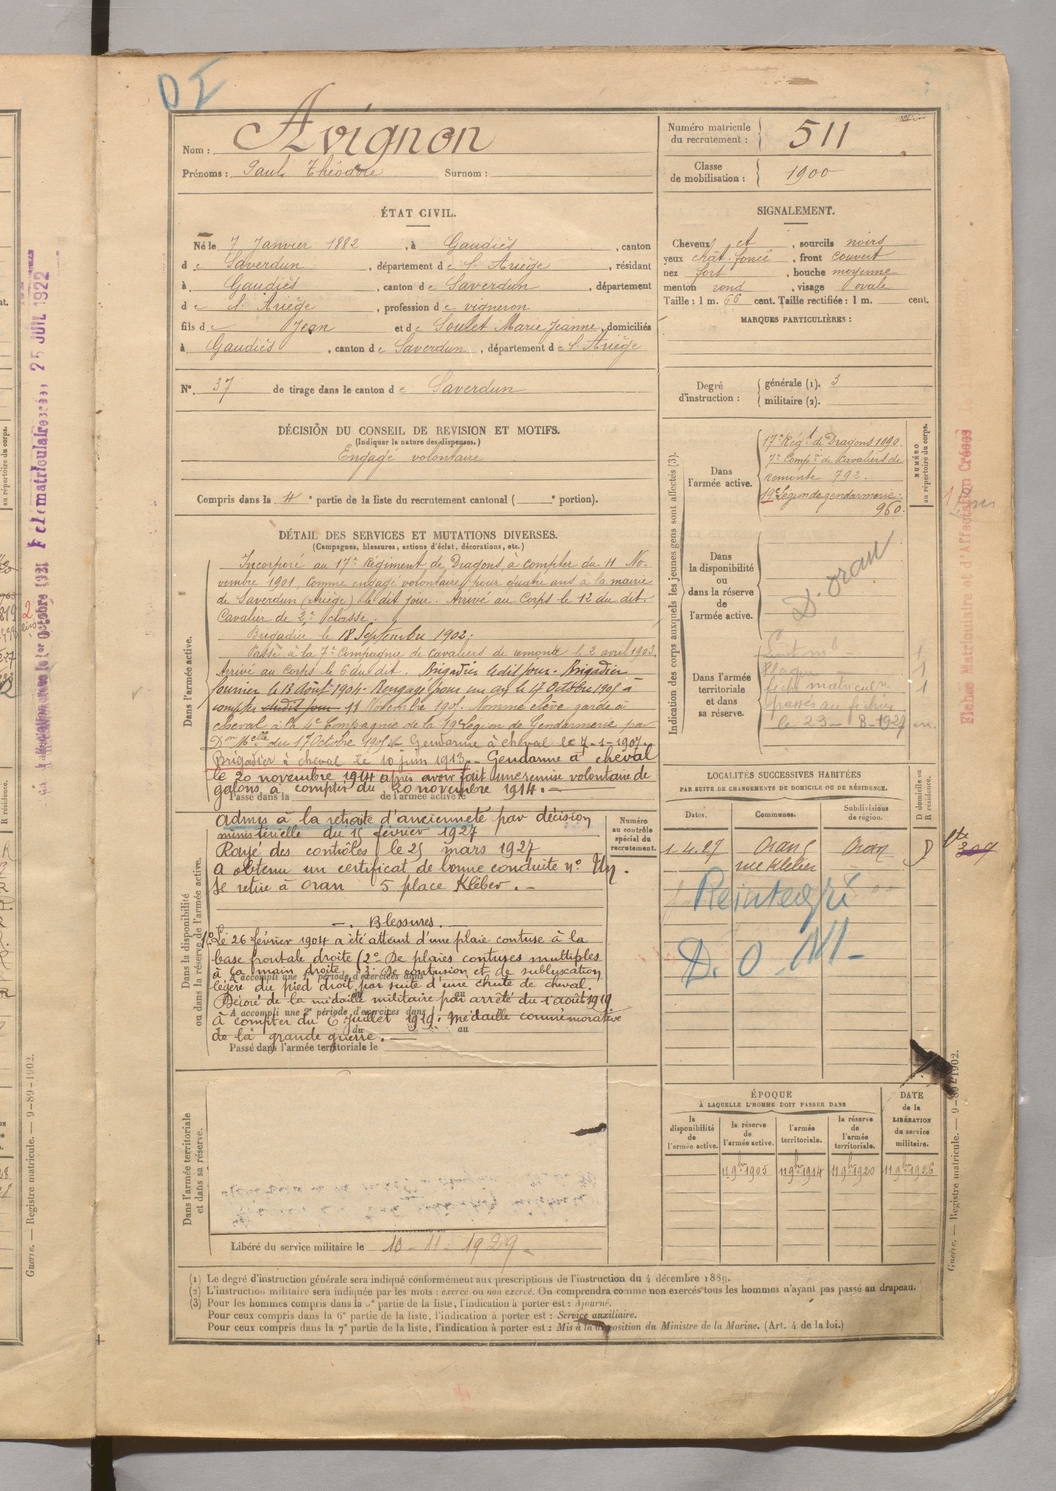 Nom : Avignon
Prénoms : Paul Théodore Surnom :
Numéro matricule du recrutement : 511
Classe de mobilisation : 1900
ÉTAT CIVIL.
Né le 7 Janvier 1882, à Gaudiès, canton
de Saverdun, département de l'Ariège, résidant
à Gaudiès, canton de Saverdun, département
de l'Ariège, profession de vigneron
fils de Jean et de Soulet Marie Jeanne, domiciliés
à Gaudiès, canton de Saverdun, département de l'Ariège
N° 37 de tirage dans le canton de Saverdun
SIGNALEMENT.
Cheveux et, sourcils noirs
yeux chât. foncé, front couvert
nez fort, bouche moyenne
menton rond, visage ovale
Taille : 1 m. 66 cent. Taille rectifiée : 1 m. cent.
MARQUES PARTICULIÈRES :
Degré d'instruction : générale (1). 3
militaire (2).
DÉCISION DU CONSEIL DE REVISION ET MOTIFS.
(Indiquer la nature des dispenses.)
Engagé volontaire
Compris dans la 4e partie de la liste du recrutement cantonal ( e portion).
DÉTAIL DES SERVICES ET MUTATIONS DIVERSES.
(Campagnes, blessures, actions d'éclat, décorations, etc.)
Dans l'armée active.
Incorporé au 17e Régiment de Dragons à compter du 11 No-
vembre 1901, comme engagé volontaire pour quatre ans à la mairie
de Saverdun (Ariège) le dit jour. Arrivé au Corps le 12 du dit
Cavalier de 2e classe.
Brigadier le 18 Septembre 1902.
Passé à la 7e Compagnie de cavaliers de remonte le 2 avril 1903.
Arrivé au Corps le 6 du dit. Brigadier le dit jour. Brigadier
fourrier le 13 Août 1904. Rengagé pour un an le 4 Octobre 1905 à
compter du dit jour 11 Novembre 1905. Nommé élève garde à
cheval à la 4e Compagnie de la 19e Légion de Gendarmerie par
Don Mlle du 17 Octobre 1905. Gendarme à cheval le 7-1-1907.
Brigadier à cheval le 10 juin 1913. Gendarme à cheval
le 20 novembre 1914 après avoir fait une remise volontaire de
galons, à compter du 20 novembre 1914.
Passé dans la de l'armée active le
Dans la disponibilité ou dans la réserve de l'armée active.
Admis à la retraite d'ancienneté par décision
ministérielle du 15 février 1927
Rayé des contrôles le 25 mars 1927
a obtenu un certificat de bonne conduite n°
Se retire à Oran 5 place Kléber.
Blessures.
1° Le 26 février 1904 a été atteint d'une plaie contuse à la
base frontale droite (2° De plaies contuses multiples
à la main droite, 3° De contusion et de subluxation
A accompli une 1re période d'exercices dans
légère du pied droit par suite d'une chute de cheval.
Décoré de la médaille militaire par arrêté du 1 août 1919
A accompli une 2e période d'exercices dans
à compter du 6 Juillet 1919. Médaille commémorative
du au
de la grande guerre.
Passé dans l'armée territoriale le
Numéro au contrôle spécial du recrutement.
Dans l'armée territoriale et dans sa réserve.
Libéré du service militaire le 10-11-1929
Indication des corps auxquels les jeunes gens sont affectés (3).
Dans l'armée active.
17e Régt de Dragons 1090
7e Compie de Cavaliers de
remonte 793.
19e Légion de gendarmerie.
960
NUMÉRO au répertoire du corps.
Dans la disponibilité ou dans la réserve de l'armée active.
D. Oran
Dans l'armée territoriale et dans sa réserve.
fiche matricule 1
passée au fichier
le 23-8-1927
LOCALITÉS SUCCESSIVES HABITÉES
PAR SUITE DE CHANGEMENTS DE DOMICILE OU DE RÉSIDENCE.
Dates. Communes. Subdivisions de région. D domicile ou R résidence.
1.4.27 Oran rue Kléber Oran D
Réintégré
D. O
ÉPOQUE
À LAQUELLE L'HOMME DOIT PASSER DANS
la disponibilité de l'armée active.
la réserve de l'armée active.
l'armée territoriale.
la réserve de l'armée territoriale.
DATE de la LIBÉRATION du service militaire.
11 9bre 1905 11 9bre 1914 11 9bre 1920 11 9bre 1926
(1) Le degré d'instruction générale sera indiqué conformément aux prescriptions de l'instruction du 4 décembre 1889.
(2) L'instruction militaire sera indiquée par les mots : exercé ou non exercé. On comprendra comme non exercés tous les hommes n'ayant pas passé au drapeau.
(3) Pour les hommes compris dans la 5e partie de la liste, l'indication à porter est : Ajourné.
Pour ceux compris dans la 6e partie de la liste, l'indication à porter est : Service auxiliaire.
Pour ceux compris dans la 7e partie de la liste, l'indication à porter est : Mis à la disposition du Ministre de la Marine. (Art. 4 de la loi.)
Guerre. — Registre matricule. — 9-89-1902.
Guerre. — Registre matricule. — 9-89-1902.
Fiches Matriculaire et d'Affectation Créées
25 JUIL 1922
au répertoire du corps.